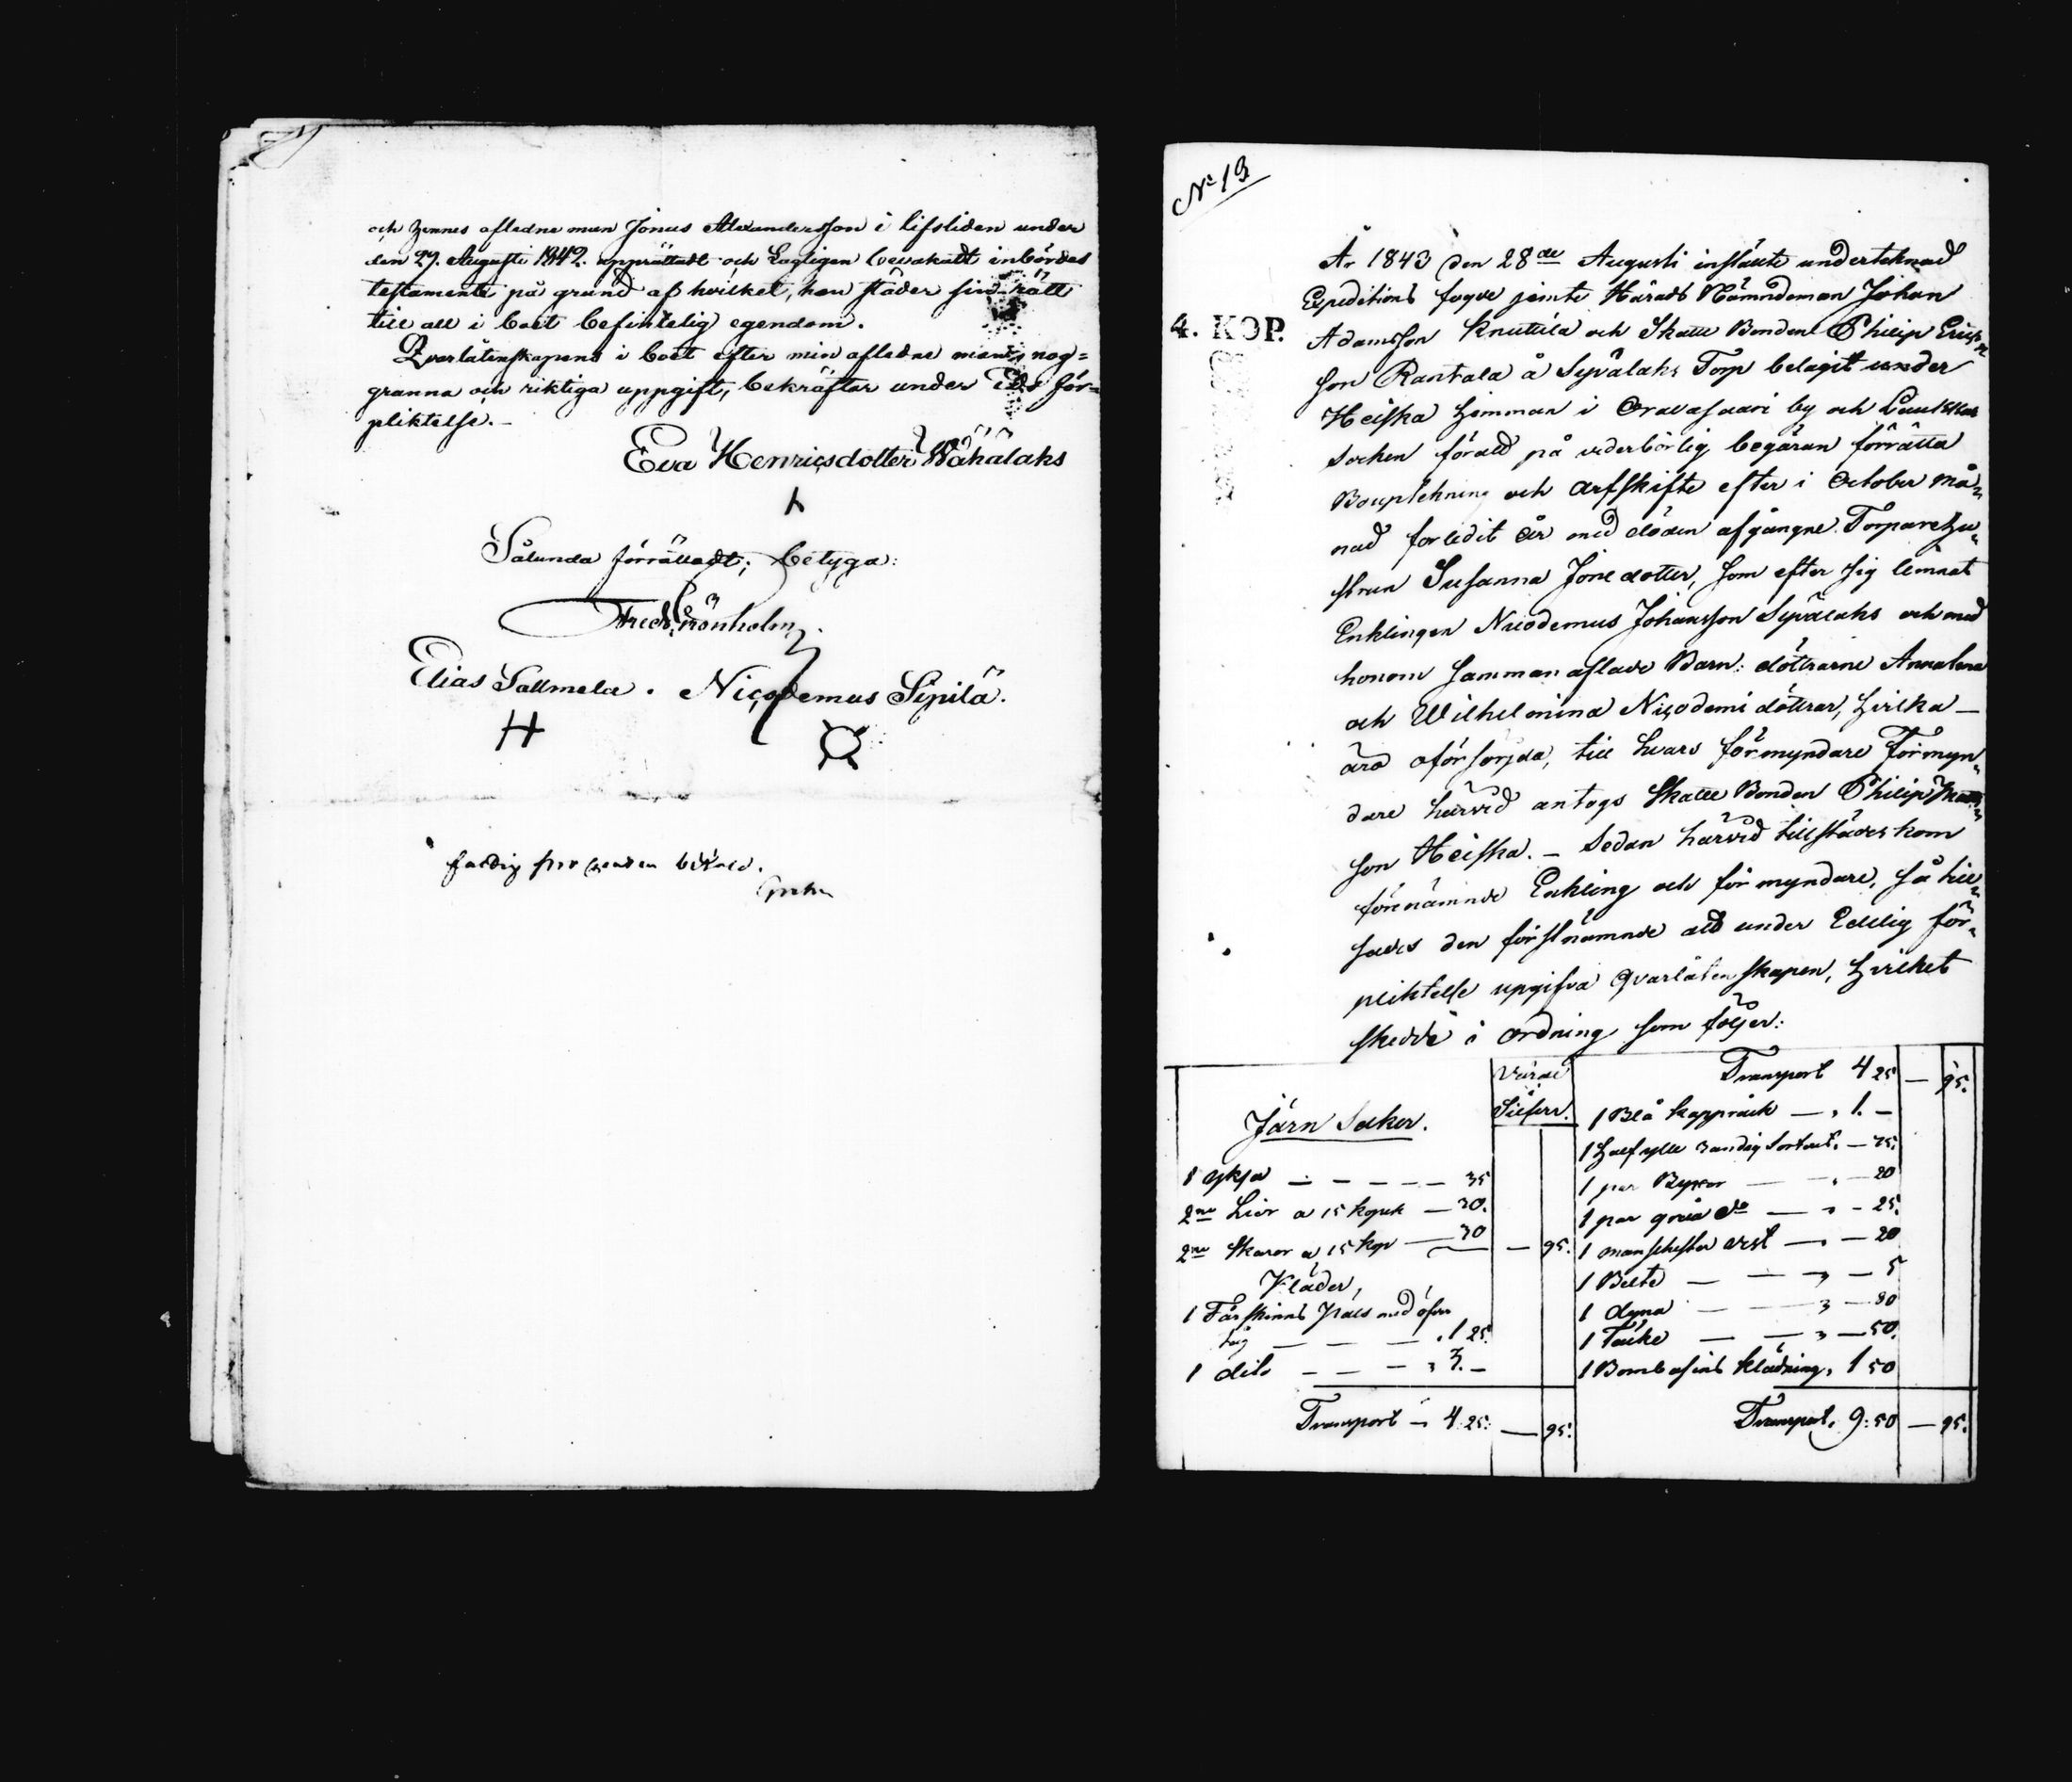 och hennes aflednе man Jonas Alexandersson i lifstiden under
den 29. Augusti 1842. upprättadt och Lagligen bevakadt inbördes
testamente på grund af hvilket, hon städer sin rätt
till all i boet befintelig egendom.
Qvarlåtenskapens i boet efter min afledne mans nog=
granna och riktiga uppgift, bekräftar under Eds för=
pliktelse. —
Eva Henricsdotter Wähälaks
Sålunda förrättadt; betyga:
Fredr. Grönholm.
Elias Sallmela. Nicodemus Sipilä.
H
fattig procenten betald.
No 13
År 1843 den 28de Augusti instälte undertecknad
Expeditions fogde jemte Härads Nämndeman Johan
4. KOP.
Adamsson Knutila och Skatte Bonden Philip Erics=
son Rantala å Syvälaks Torp belagit under
Heiska hemman i Oravasaari by och Laukkas
Socken föratt på vederbörlig begäran förrätta
Bouptekning och arfskifte efter i October må=
nad forledit år med döden afgångne Torpare hu=
strun Susanna Jone dotter, som efter sig lemnat
Enklingen Nicodemus Johansson Syvälaks och med
honom sammanaflade Barn: döttrarne Annalena
och Wilhelmina Nicodemi döttrar, hvilka —
äro oförsörjda, till hvars förmyndare Förmyn=
dare härvid antogs Skatte Bonden Philip
son Heiska. — Sedan härvid tillstädes kom
förenämnde Enkling och förmyndare, så till=
sades den förstnämnde att under Edelig för=
pliktelse upgifva qvarlåtenskapen, hvilket
skedde i ordning som följer:
Värde
Silfver.
Järn Saker.
1 yksa — — — — — 35
2ne Liar a 15 kopek — 30.
2ne Skaror a 15 kop — 30 — 95.
Kläder,
1 Fårskinns Päls med öfver
tyg — — — „ 1 25.
1 dito — — — „ 3. —
Transport — 4 25. — 95.
Transport 4 25 — 95.
1 Blå kapprock — „ 1. —
1 Half ylle randig Sortout. — 75.
1 par Byxor — „ — 20
1 par gråa do — „ — 25.
1 manschester väst — „ — 20
1 Bälte — — „ — 5
1 dyna — — „ — 80
1 Täcke — — „ — 50.
1 Bombasins klädning „ 1 50
Transport, 9:50 — 95.